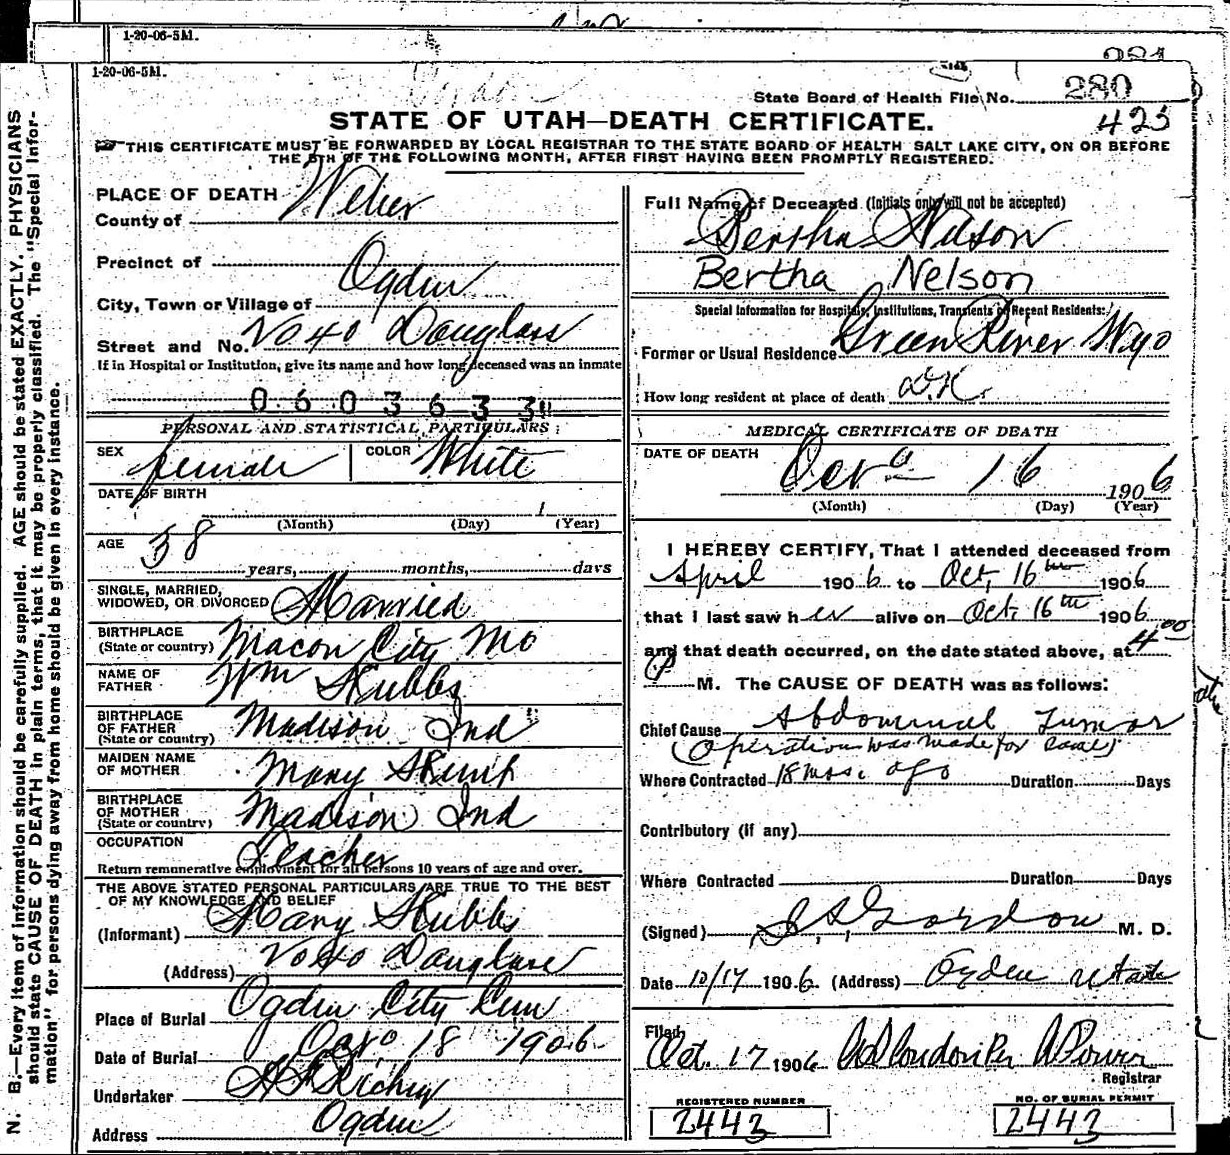 1-20-06-5M.
1-20-06-5M.
State Board of Health File No. 280
STATE OF UTAH—DEATH CERTIFICATE. 425
THIS CERTIFICATE MUST BE FORWARDED BY LOCAL REGISTRAR TO THE STATE BOARD OF HEALTH SALT LAKE CITY, ON OR BEFORE
THE 5TH OF THE FOLLOWING MONTH, AFTER FIRST HAVING BEEN PROMPTLY REGISTERED.
N. B.—Every item of information should be carefully supplied. AGE should be stated EXACTLY. PHYSICIANS
should state CAUSE OF DEATH in plain terms, that it may be properly classified. The "Special Infor-
mation" for persons dying away from home should be given in every instance.
PLACE OF DEATH
County of Weber
Precinct of
City, Town or Village of Ogden
Street and No. No 40 Douglass
If in Hospital or Institution, give its name and how long deceased was an inmate
0 6 0 3 6 3 3
PERSONAL AND STATISTICAL PARTICULARS
SEX female COLOR White
DATE OF BIRTH
(Month) (Day) (Year)
AGE 38 years, months, days
SINGLE, MARRIED,
WIDOWED, OR DIVORCED Married
BIRTHPLACE
(State or country) Macon City Mo
NAME OF
FATHER Wm Stubbs
BIRTHPLACE
OF FATHER
(State or country) Madison Ind
MAIDEN NAME
OF MOTHER Mary
BIRTHPLACE
OF MOTHER
(State or country) Madison Ind
OCCUPATION Teacher
Return remunerative employment for all persons 10 years of age and over.
THE ABOVE STATED PERSONAL PARTICULARS ARE TRUE TO THE BEST
OF MY KNOWLEDGE AND BELIEF
(Informant) Mary Stubbs
(Address) No 40 Douglass
Place of Burial Ogden City Cem
Date of Burial Oct 18 1906
Undertaker Richey
Address Ogden
Full Name of Deceased (Initials only will not be accepted)
Bertha Nelson
Bertha Nelson
Special Information for Hospitals, Institutions, Transients or Recent Residents:
Former or Usual Residence Green River Wyo
How long resident at place of death D.K.
MEDICAL CERTIFICATE OF DEATH
DATE OF DEATH
Oct 16 1906
(Month) (Day) (Year)
I HEREBY CERTIFY, That I attended deceased from
April 1906 to Oct, 16th 1906
that I last saw her alive on Oct. 16th 1906
and that death occurred, on the date stated above, at 4.00
P M. The CAUSE OF DEATH was as follows:
Chief Cause Abdominal Tumor
(Operation was made for same)
Where Contracted 18 mos. ago Duration Days
Contributory (if any)
Where Contracted Duration Days
(Signed) Gordon M. D.
Date 10/17 1906 (Address) Ogden Utah
Filed
Oct. 17 1906
Registrar
REGISTERED NUMBER
2443
NO. OF BURIAL PERMIT
2443